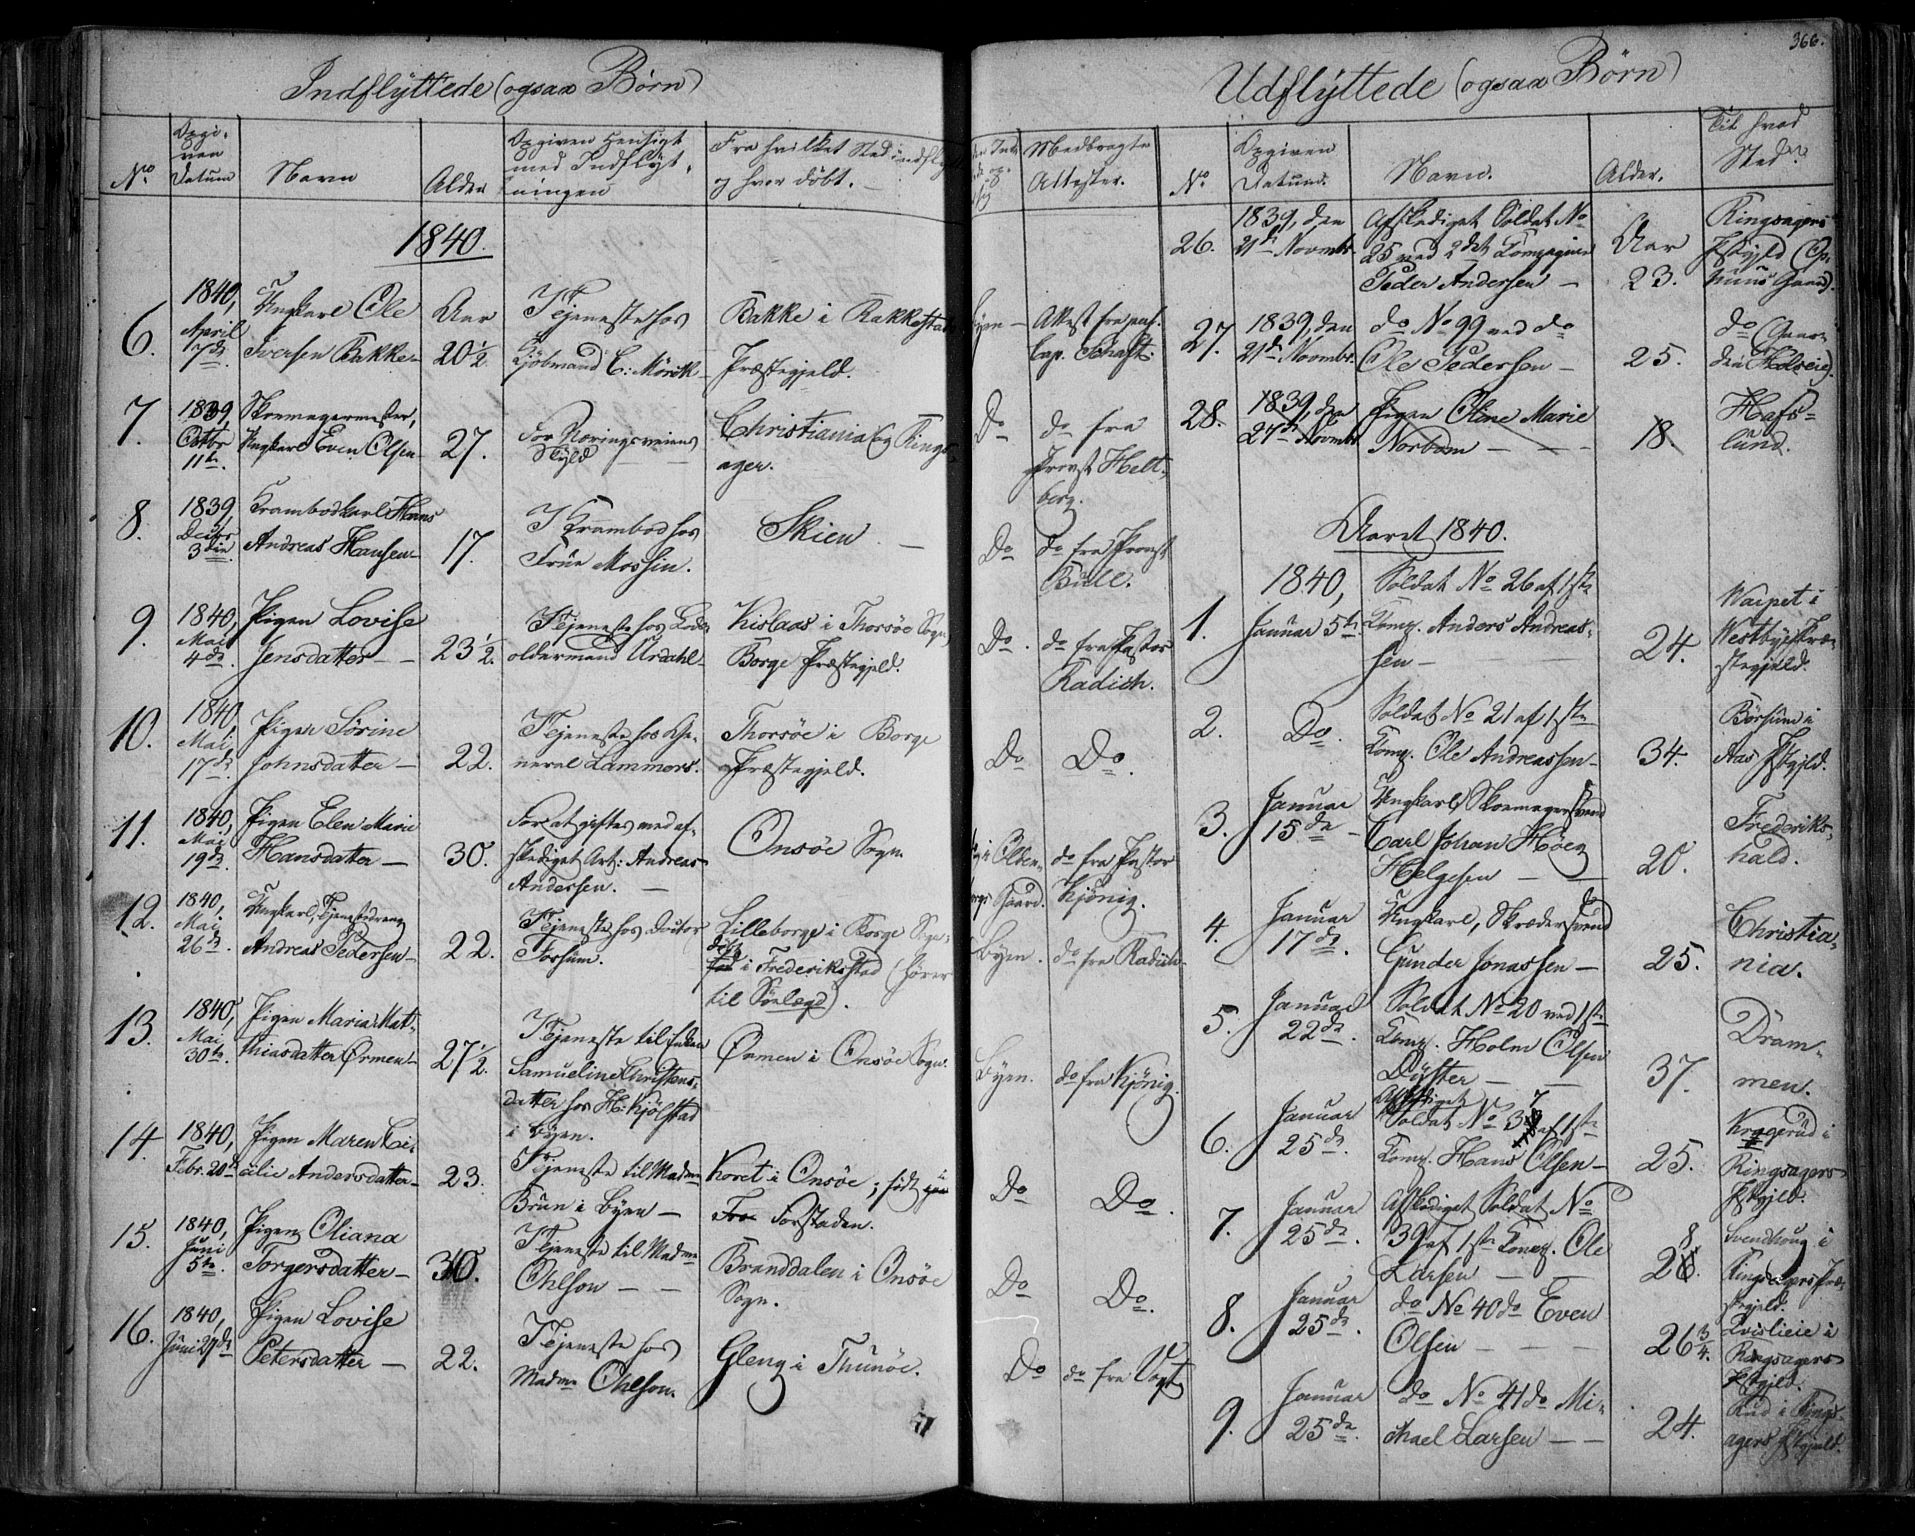 366.
Indflÿttede (ogsaa Børn)
No
Opgi-
ven
Datum
Navn
Alder
Opgiven Hensigt
med Indflÿt-
ningen
Fra hvilket Sted indfl
og hvor døbt. —
Medbragte
Attester.
1840.
6.
1840,
April
17de
Ungkarl Ole
Iversen Bakke
Aar
20 1/2
Tjeneste hos
Kjøbmand C: Mörck
Bakke i Rakkestads
Præstegjeld.
Byen —
Attest fra
Cap.
7.
1839
Octbr
11te.
Skomagermester,
Ungkarl Even Olsen
27.
For Næringsveiens
Skÿld — —
Christiania (og Rings-
ager.
Do
do fra
Provst Helt-
berg.
8.
1839.
Decbr.
3die
Krambodkarl Hans
Andreas Hansen
17.
I Krambod hos
Früe Mossin.
Skien —
Do
do fra Provst
Bull.
9.
1840,
Mai
4de.
Pigen Lovise
Jensdatter — —
23 1/2.
Tjeneste hos Lods-
oldermand Urdahl
Kislaas i Thorsöe Sogn,
Borge Præstegjeld.
Do.
do fra Pastor
Radich.
10.
1840,
Mai
17de
Pigen Sörine
Johnsdatter —
22.
Tjeneste hos Ge-
neral Lammers.
Thorsöe i Borge
Præstegjeld.
Do
Do.
11.
1840,
Mai
19de
Pigen Elen Marie
Hansdatter —
30.
For at giftes med af-
skediget Art: Andreas
Andersen. —
Onsöe Sogn
i Olden-
borgs Gaard.
do fra Pastor
Kjönig.
12.
1840,
Mai
26de.
Ungkarl, Tjenestedreng
Andreas Pedersen
22.
Tjeneste hos Doctor
Forsum.
Lilleborge i Borge Sogn.
döbt i Frederiksstad (hörer
til Sörlegd).
Byen.
do fra Radich
13.
1840,
Mai
30te.
Pigen Maria Mat-
thiasdatter Ørmen
27 1/2.
Tjeneste til Enken
Samueline Christens-
datter hos H: Kjölstad
i Byen.
Ørmen i Onsöe Sogn.
Byen.
do fra Kjönig.
14.
1840,
Febr. 20de
Pigen Maren Ce-
cilie Andersdatter
23.
Tjeneste til Madme
Brun i Byen —
Koret i Onsöe; födt
Fra Forstaden.
Do
Do.
15.
1840,
Juni
5te
Pigen Oliana
Torgersdatter —
30.
Tjeneste til Madme
Ohlson — —
Branddalen i Onsöe
Sogn.
Do
Do.
16.
1840,
Juni 27de
Pigen Lovise
Petersdatter —
22.
Tjeneste hos
Madme Ohlson.
Gleng i Thunöe.
Do
do fra Vogt
Udflÿttede (ogsaa Børn)
No
Opgiven
Datum.
Navn.
Alder.
Til hvad
Sted.
26.
1839, den
21de Novmbr
Afskediget Soldat No
25 ved 2det Compagnie
Peder Andersen —
Aar
23.
Ringsagers
Pstgjeld
27.
1839, den
21de Novmbr.
do No 99 ved do
Ole Pedersen —
25.
do
28.
1839, den
27de Novmbr
Pigen Oline Marie
Norbom — — —
18.
Hafs-
lund.
Aaret 1840.
1.
1840,
Januar 5te
Soldat No 26 af 1ste
Comp. Anders Andreas-
sen —
24.
Warpet i
Westbÿe Præ-
stegjeld.
2.
Do.
Soldat No 21 af 1ste
Comp. Ole Andreassen —
34.
Börsum i
Aas Pstgjld.
3.
Januar
15de —
Ungkarl, Skomagersvend
Carl Johan Höeg
Helgesen — —
20.
Frederiks-
hald.
4.
Januar
17de.
Ungkarl, Skrædersvend
Gunder Jonassen —
25.
Christia-
nia.
5.
Januar
22de.
Soldat No 20 ved 1ste
Comp. Holm Olsen
Düster — —
37.
Dram-
men.
6.
Januar
25de.
Afskediget
Soldat No 37 af 1ste
Comp. Hans Olsen —
25.
Kragerüd i
Ringsagers
Pstgjeld.
7.
Januar
25de.
Afskediget Soldat No
39 af 1ste Comp. Ole
Larsen — —
28.
Svendsoug i
Ringsagers Præ-
stgjeld.
8.
Januar
25de.
do No 40 do Even
Olsen — — —
26 3/4.
Qvislieie i
Ringsagers
Pstgjeld.
9.
Januar
25de.
do No 41 do Mi-
chael Larsen — —
24.
Rud i Rings-
agers Pstgjeld.